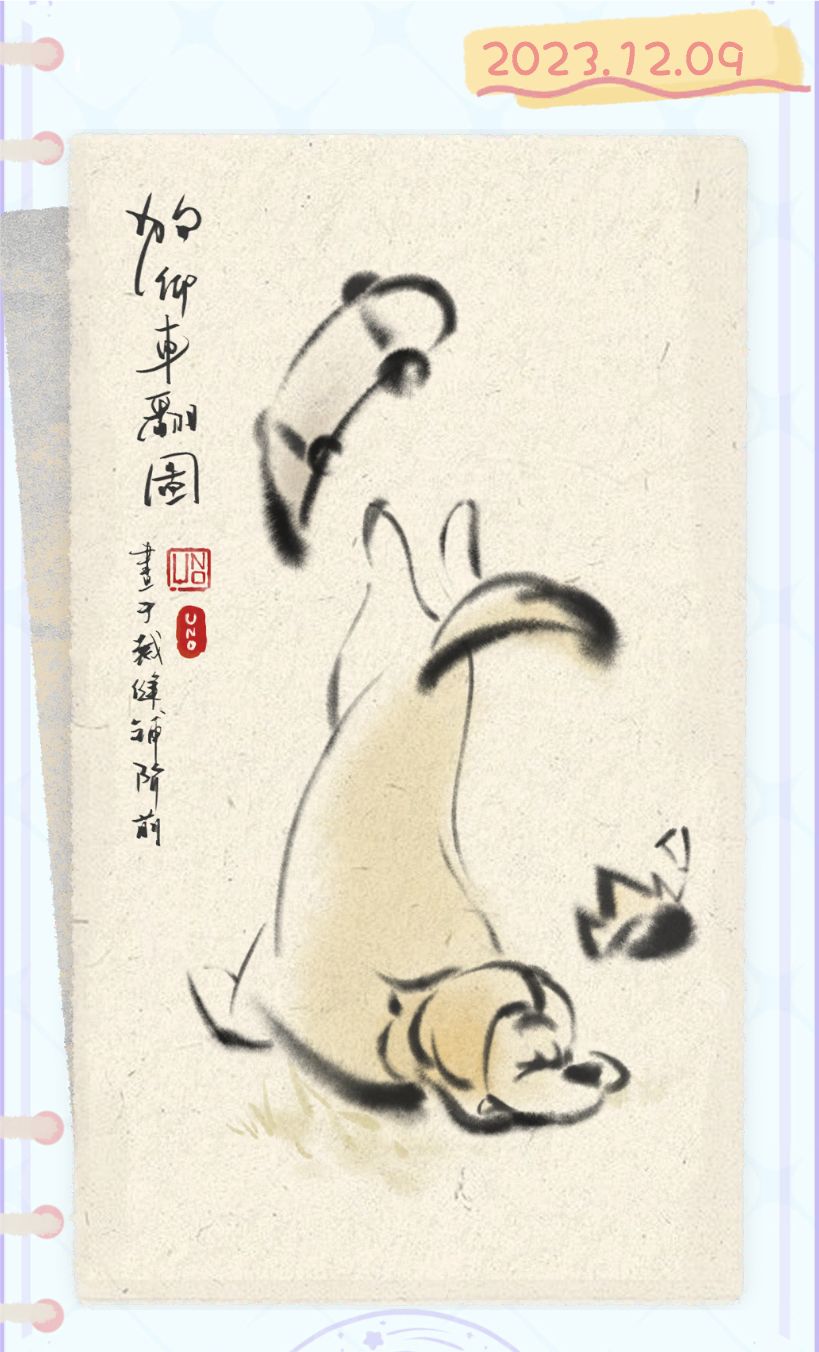 2023.12.09
狗仰車翻圖
畫于裁縫鋪階前
UNO
UNO